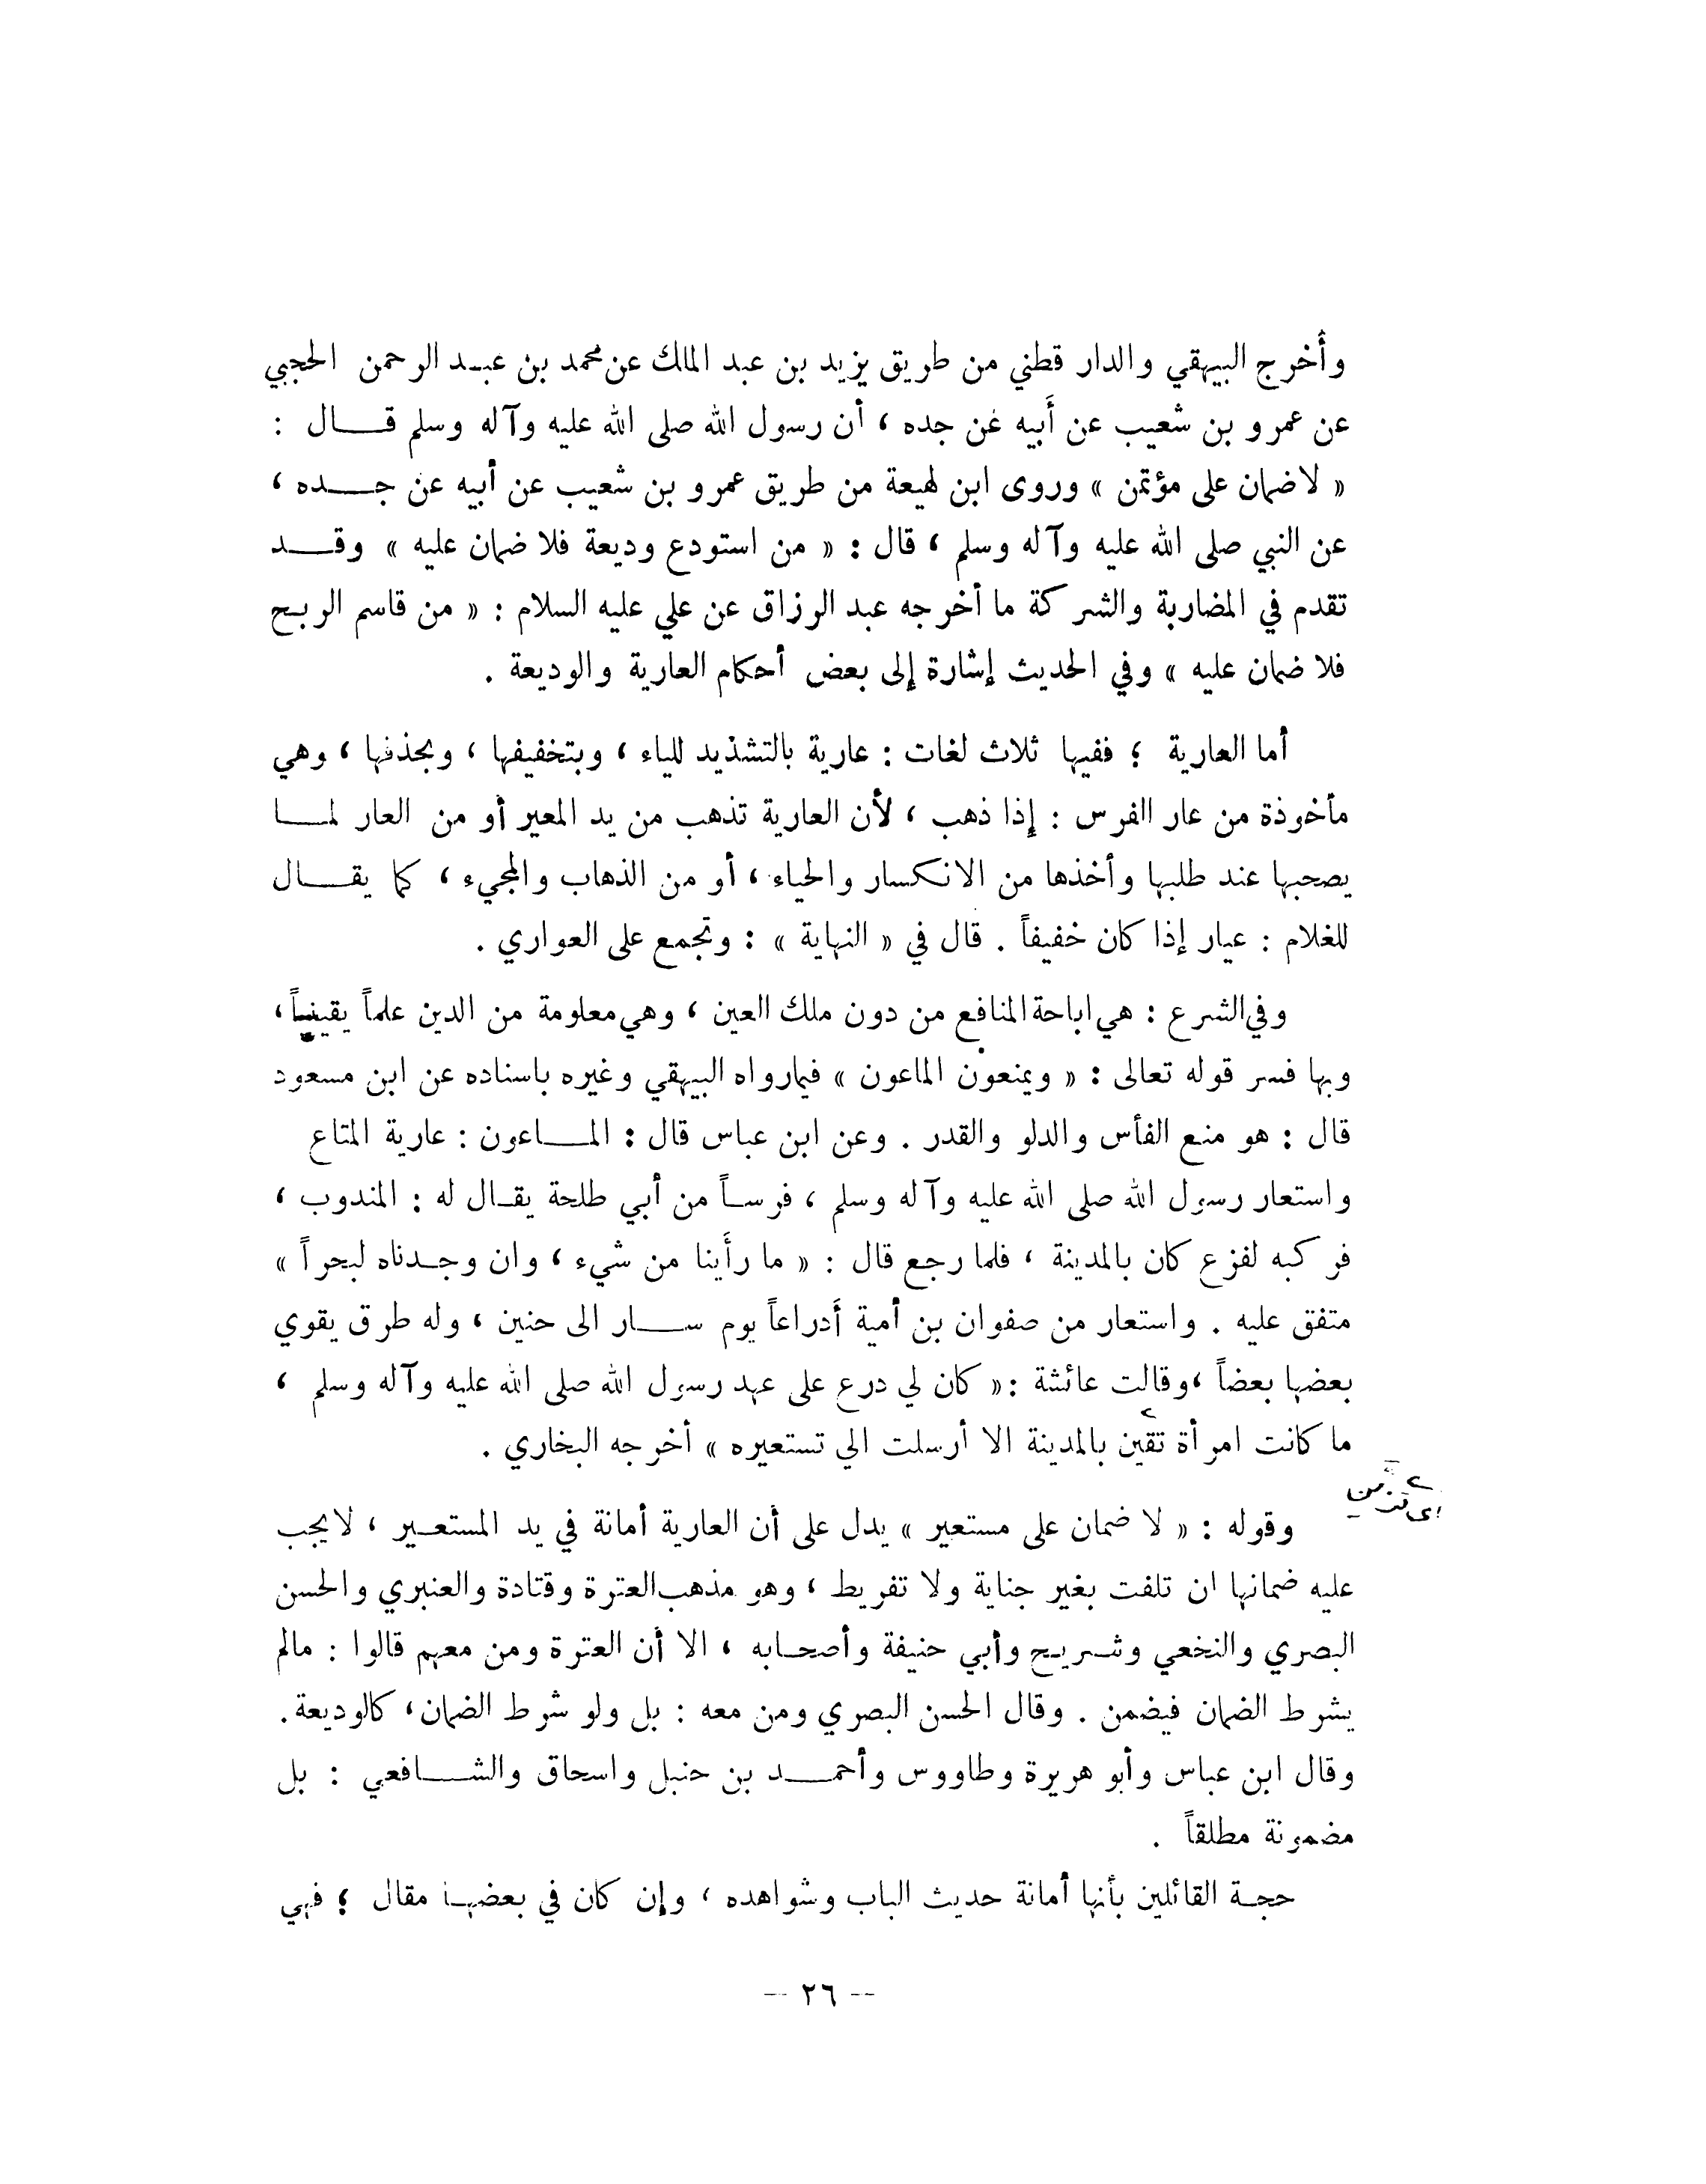 وأخرج البيهقي والدار قطني من طريق يزيد بن عبد الملك عن محمد بن عبد الرحمن الحجبي
عن عمرو بن شعيب عن أبيه عن جده ، أن رسول الله صلى الله عليه وآله وسلم قال :
« لا ضمان على مؤتمن » وروى ابن لهيعة من طريق عمرو بن شعيب عن أبيه عن جده ،
عن النبي صلى الله عليه وآله وسلم ، قال : « من استودع وديعة فلا ضمان عليه » وقد
تقدم في المضاربة والشركة ما أخرجه عبد الرزاق عن علي عليه السلام : « من قاسم الربح
فلا ضمان عليه » وفي الحديث إشارة إلى بعض أحكام العارية والوديعة .
أما العارية ؛ ففيها ثلاث لغات : عارية بالتشديد للياء ، وبتخفيفها ، وبحذفها ، وهي
مأخوذة من عار الفرس : إذا ذهب ، لأن العارية تذهب من يد المعير أو من العار لما
يصحبها عند طلبها وأخذها من الانكسار والحياء ، أو من الذهاب والمجيء ، كما يقال
للغلام : عيار إذا كان خفيفاً . قال في « النهاية » : وتجمع على العواري .
وفي الشرع : هي اباحة المنافع من دون ملك العين ، وهي معلومة من الدين علماً يقينياً ،
وبها فسر قوله تعالى : « ويمنعون الماعون » فيما رواه البيهقي وغيره باسناده عن ابن مسعود
قال : هو منع الفأس والدلو والقدر . وعن ابن عباس قال : الماعون : عارية المتاع
واستعار رسول الله صلى الله عليه وآله وسلم ، فرساً من أبي طلحة يقال له : المندوب ،
فركبه لفزع كان بالمدينة ، فلما رجع قال : « ما رأينا من شيء ، وان وجدناه لبحراً »
متفق عليه . واستعار من صفوان بن أمية أدراعاً يوم سار الى حنين ، وله طرق يقوي
بعضها بعضاً ، وقالت عائشة : « كان لي درع على عهد رسول الله صلى الله عليه وآله وسلم ،
ما كانت امرأة تقين بالمدينة الا أرسلت الي تستعيره » أخرجه البخاري .
وقوله : « لا ضمان على مستعير » يدل على أن العارية أمانة في يد المستعير ، لا يجب
عليه ضمانها ان تلفت بغير جناية ولا تفريط ، وهو مذهب العترة وقتادة والعنبري والحسن
البصري والنخعي وشريح وأبي حنيفة وأصحابه ، الا أن العترة ومن معهم قالوا : مالم
يشرط الضمان فيضمن . وقال الحسن البصري ومن معه : بل ولو شرط الضمان ، كالوديعة .
وقال ابن عباس وأبو هريرة وطاووس وأحمد بن حنبل واسحاق والشافعي : بل
مضمونة مطلقاً .
حجة القائلين بأنها أمانة حديث الباب وشواهده ، وإن كان في بعضها مقال ؛ فهي
-- ٢٦ --